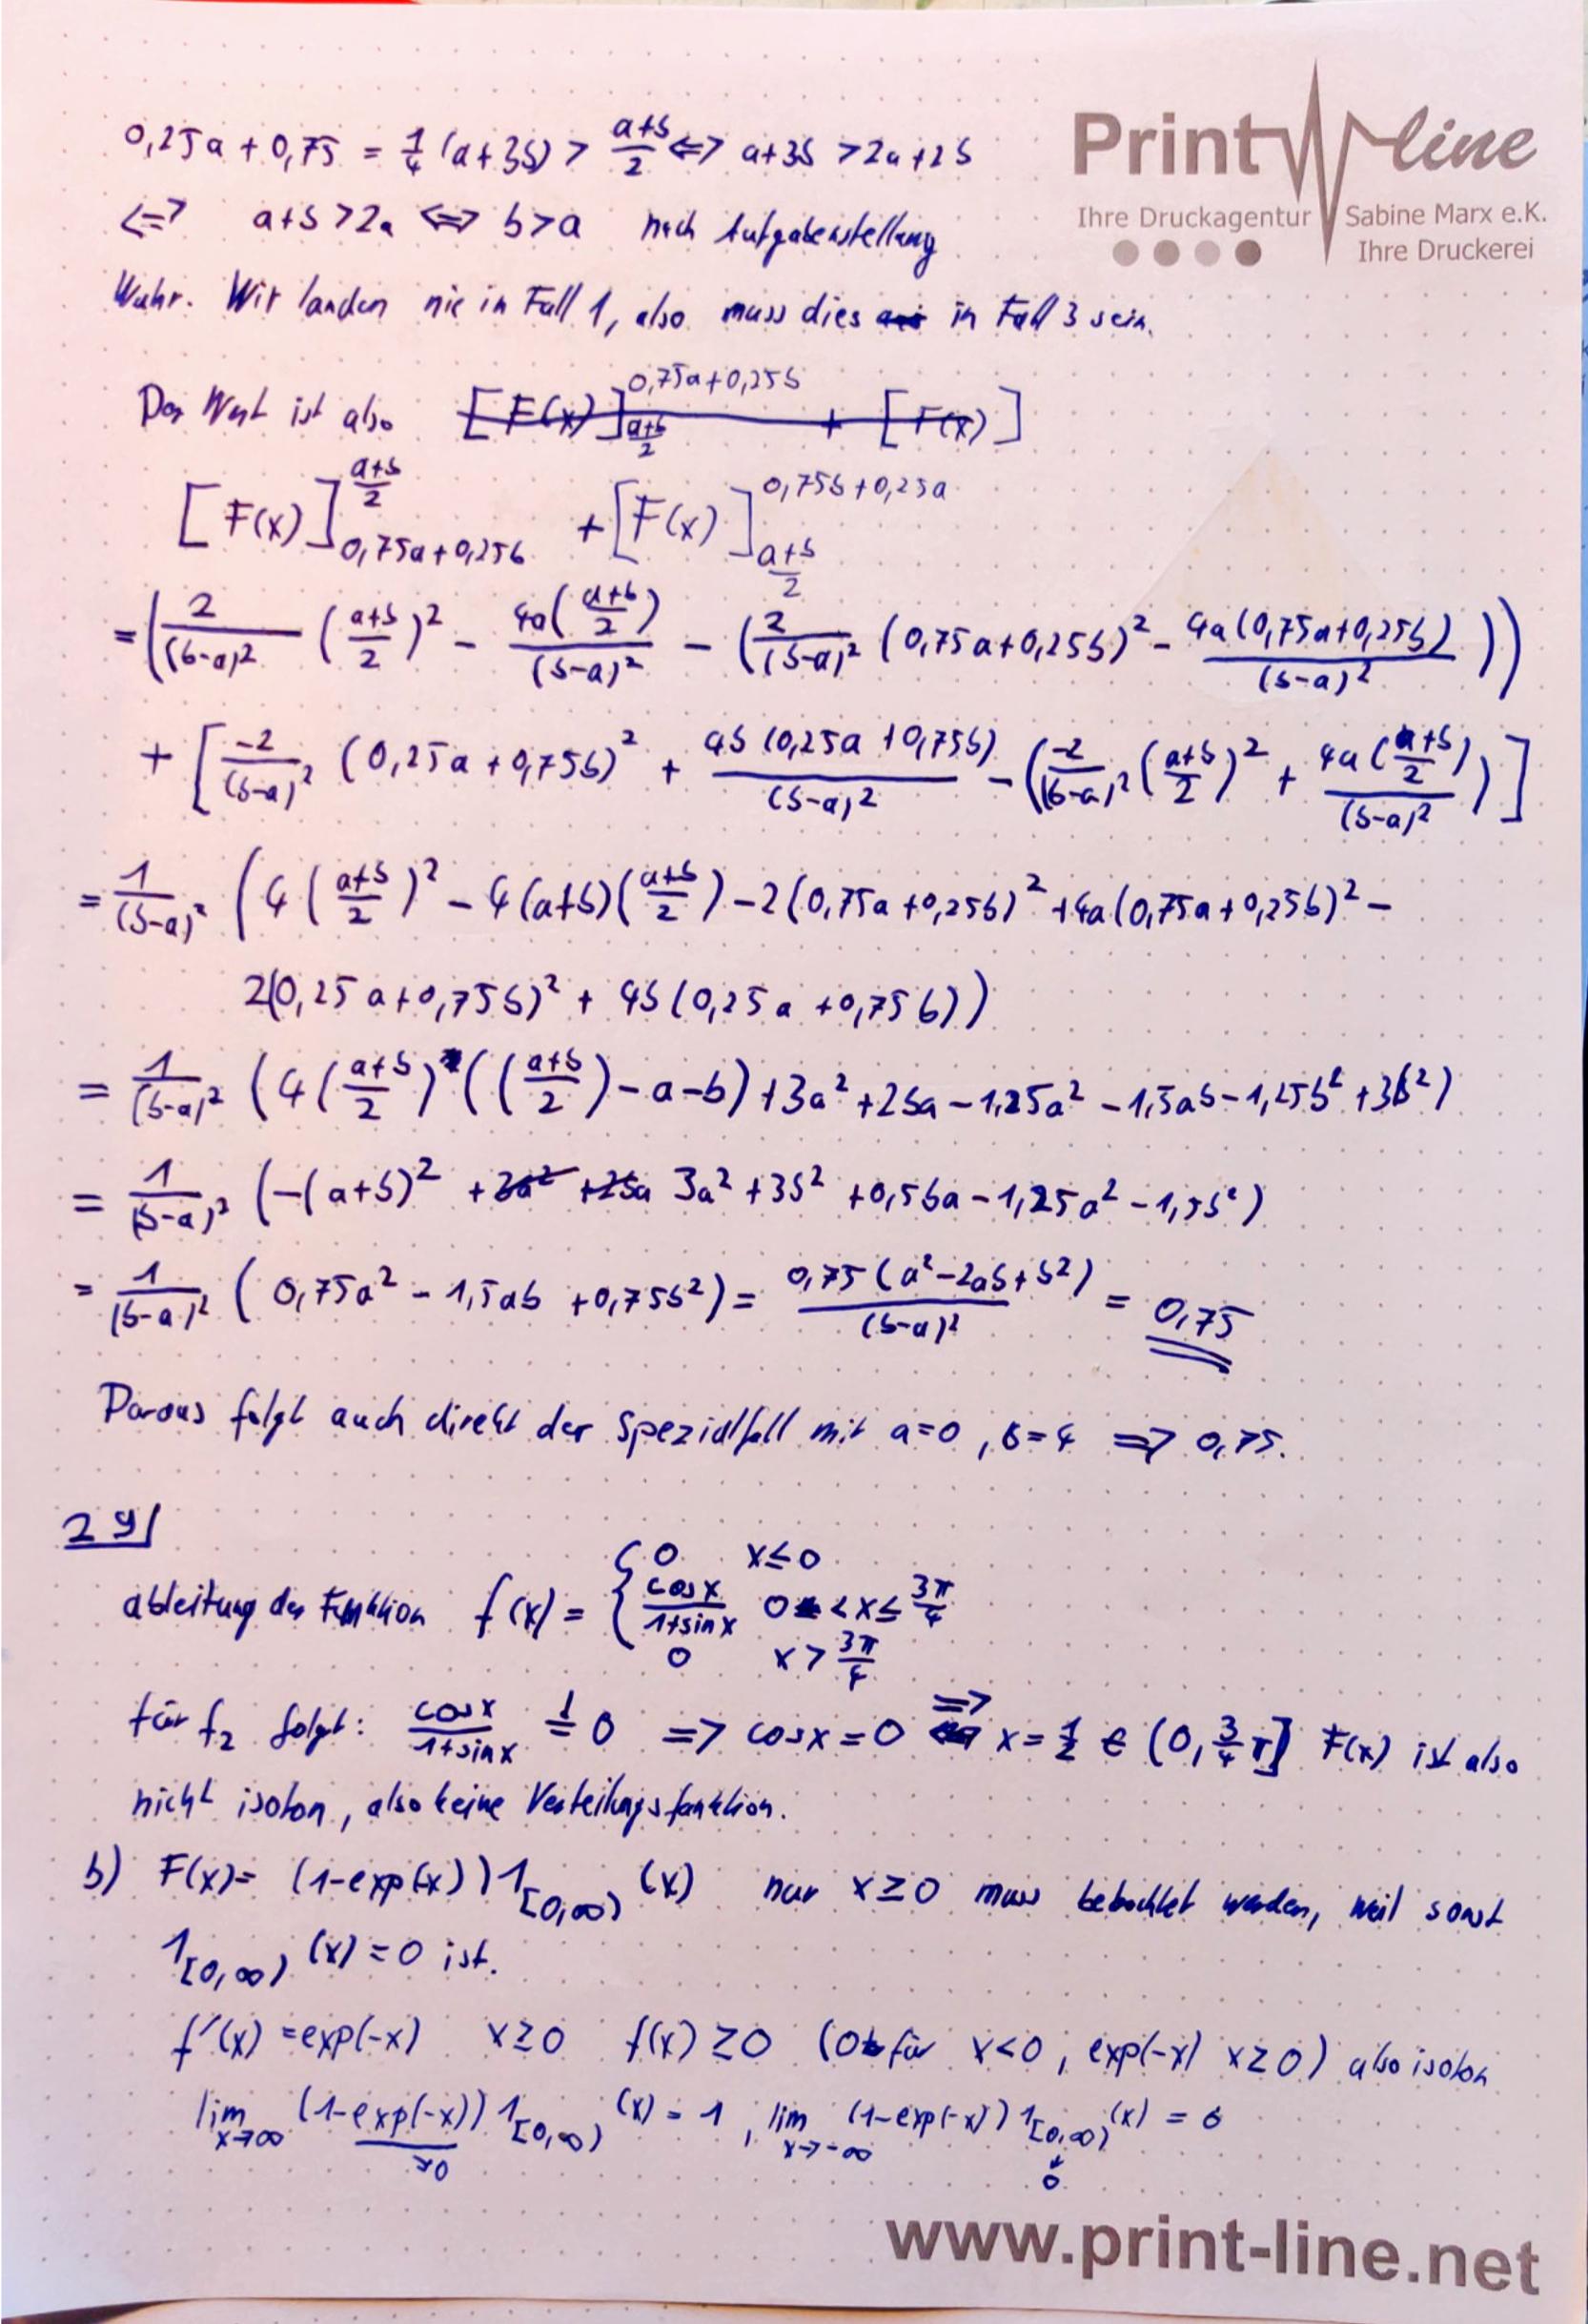 Print line
Ihre Druckagentur Sabine Marx e.K.
Ihre Druckerei
0,25a + 0,75 = 1/4 (a+3b) > (a+b)/2 <=> a+3b > 2a+2b
<=> a+b > 2a <=> b > a nach Aufgabenstellung
Wahr. Wir landen nie in Fall 1, also muss dies in Fall 3 sein.
Der Wert ist also [F(x)]_{(a+b)/2}^{0,75a+0,25b} + [F(x)]
[F(x)]_{0,75a+0,25b}^{(a+b)/2} + [F(x)]_{(a+b)/2}^{0,75b+0,25a}
= (2/(b-a)² ((a+b)/2)² - 4a((a+b)/2)/(b-a)² - (2/(b-a)² (0,75a+0,25b)² - 4a(0,75a+0,25b)/(b-a)²))
+ [-2/(b-a)² (0,25a+0,75b)² + 4b(0,25a+0,75b)/(b-a)² - (-2/(b-a)² ((a+b)/2)² + 4a((a+b)/2)/(b-a)²)]
= 1/(b-a)² (4((a+b)/2)² - 4(a+b)((a+b)/2) - 2(0,75a+0,25b)² + 4a(0,75a+0,25b)² -
2(0,25a+0,75b)² + 4b(0,25a+0,75b))
= 1/(b-a)² (4((a+b)/2)(((a+b)/2)-a-b) + 3a² + 2ba - 1,25a² - 1,5ab - 1,25b² + 3b²)
= 1/(b-a)² (-(a+b)² + 3a² + 2ba 3a² + 3b² + 0,5ba - 1,25a² - 1,5b²)
= 1/(b-a)² (0,75a² - 1,5ab + 0,75b²) = 0,75(a²-2ab+b²)/(b-a)² = 0,75
Daraus folgt auch direkt der Spezialfall mit a=0, b=4 => 0,75.
29)
ableitung der Funktion f(x) = { 0 x≤0
cosx/(1+sinx) 0 < x ≤ 3π/4
0 x > 3π/4
für f₂ folgt: cosx/(1+sinx) =! 0 => cosx = 0 => x = 1/2 ∈ (0, 3/4 π] F(x) ist also
nicht isoton, also keine Verteilungsfunktion.
b) F(x) = (1-exp(-x)) 1_{[0,∞)}(x) nur x≥0 muss betrachtet werden, weil sonst
1_{[0,∞)}(x) = 0 ist.
f'(x) = exp(-x) x≥0 f(x) ≥ 0 (0 für x<0, exp(-x) x≥0) also isoton
lim_{x→∞} (1-exp(-x)) 1_{[0,∞)}(x) = 1, lim_{x→-∞} (1-exp(-x)) 1_{[0,∞)}(x) = 0
→0 0
www.print-line.net